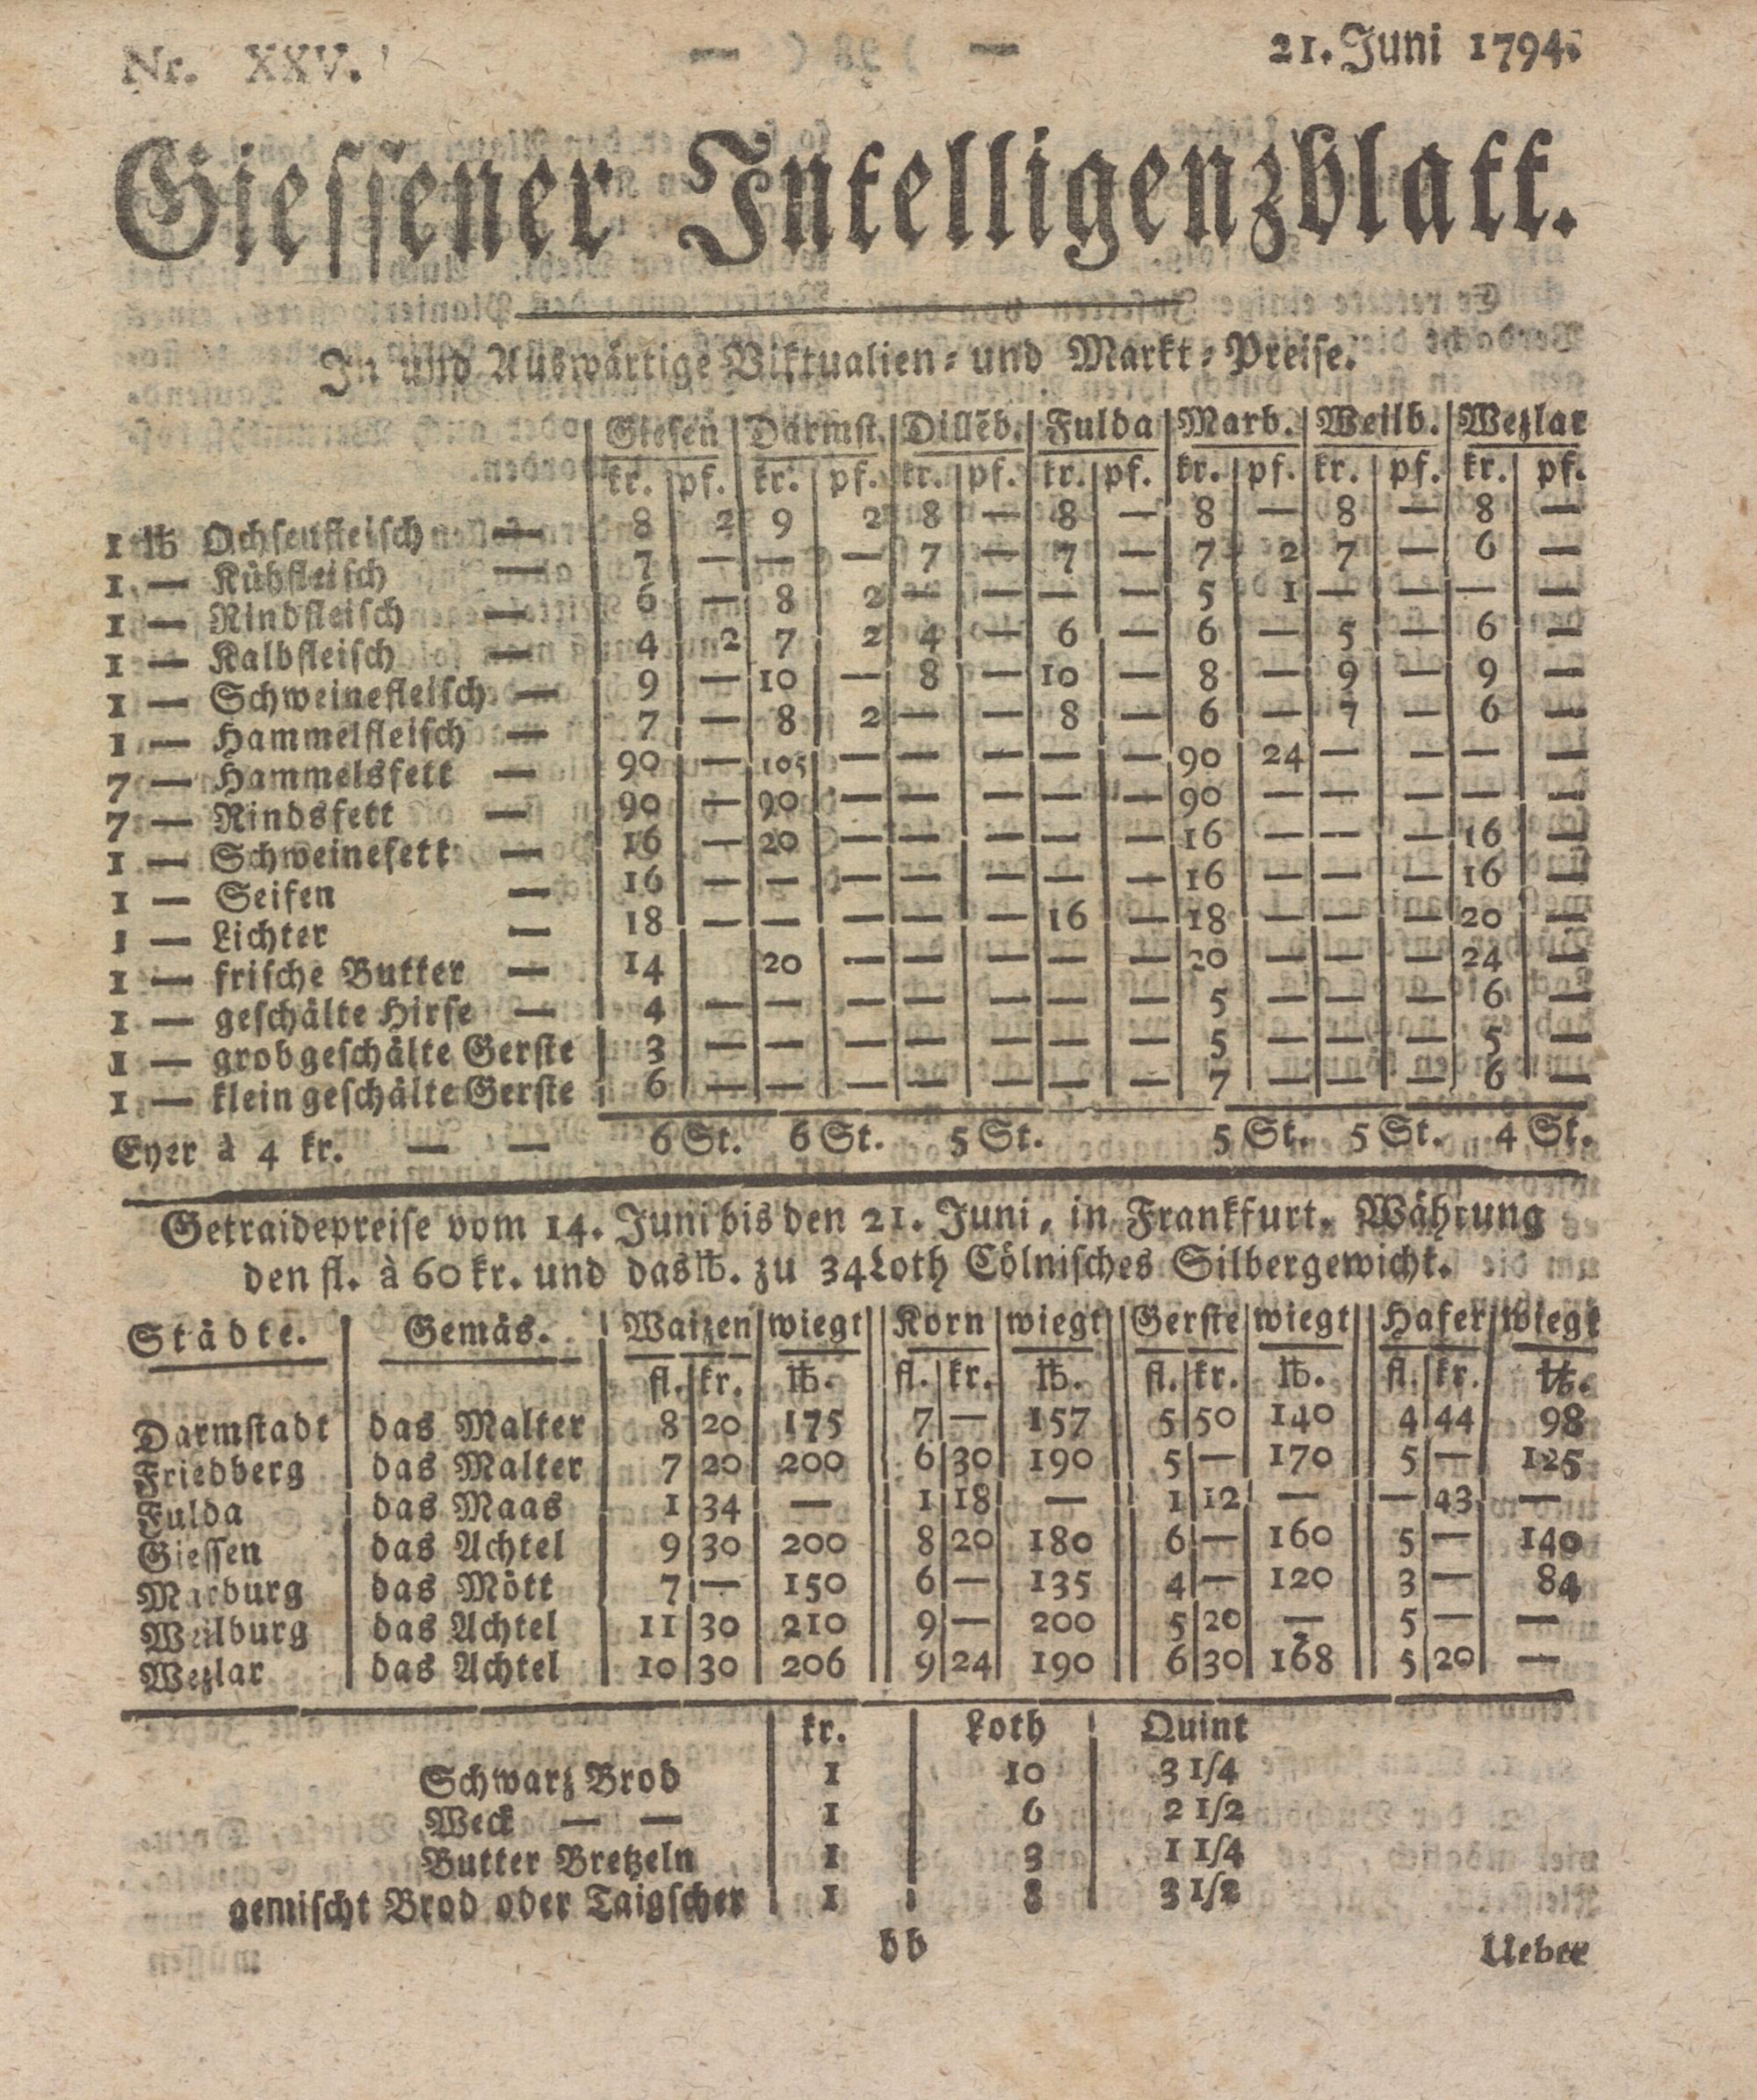 Nr. XXV.
— ) 89 ( —
21. Juni 1794.
Giessener Intelligenzblatt.
In und Auswärtige Viktualien- und Markt-Preise.
Giesen Darmst. Dillēb. Fulda Marb. Weilb. Wezlar
kr. pf. kr. pf. kr. pf. kr. pf. kr. pf. kr. pf. kr. pf.
1 ℔ Ochsenfleisch — 8 2 9 2 8 — 8 — 8 — 8 — 8 —
1 — Kühfleisch — 7 — — — 7 — 7 — 7 2 7 — 6 —
1 — Rindfleisch — 6 — 8 2 — — — — 5 1 — — — —
1 — Kalbfleisch — 4 2 7 2 4 — 6 — 6 — 5 — 6 —
1 — Schweinefleisch — 9 — 10 — 8 — 10 — 8 — 9 — 9 —
1 — Hammelfleisch — 7 — 8 2 — — 8 — 6 — 7 — 6 —
7 — Hammelsfett — 90 — 105 — — — — — 90 24 — — — —
7 — Rindsfett — 90 — 90 — — — — — 90 — — — — —
1 — Schweinefett — 16 — 20 — — — — — 16 — — — 16 —
1 — Seifen — 16 — — — — — — — 16 — — — 16 —
1 — Lichter — 18 — — — — — 16 — 18 — — — 20 —
1 — frische Butter — 14 20 — — — — — 20 — — — 24 —
1 — geschälte Hirse — 4 — — — — — — — 5 — — — 6 —
1 — grobgeschälte Gerste 3 — — — — — — — 5 — — — 5 —
1 — klein geschälte Gerste 6 — — — — — — — 7 — — — 6 —
Eyer à 4 kr. — — 6 St. 6 St. 5 St. 5 St. 5 St. 4 St.
Getraidepreise vom 14. Juni bis den 21. Juni, in Frankfurt. Währung
den fl. à 60 kr. und das ℔. zu 34 Loth Cölnisches Silbergewicht.
Städte. Gemäs. Waizen wiegt Korn wiegt Gerste wiegt Hafer wiegt
fl. kr. ℔. fl. kr. ℔. fl. kr. ℔. fl. kr. ℔.
Darmstadt das Malter 8 20 175 7 — 157 5 50 140 4 44 98
Friedberg das Malter 7 20 200 6 30 190 5 — 170 5 — 125
Fulda das Maas 1 34 — 1 18 — 1 12 — — 43 —
Giessen das Achtel 9 30 200 8 20 180 6 — 160 5 — 140
Marburg das Mött 7 — 150 6 — 135 4 — 120 3 — 84
Weilburg das Achtel 11 30 210 9 — 200 5 20 — 5 — —
Wezlar das Achtel 10 30 206 9 24 190 6 30 168 5 20 —
kr. Loth Quint
Schwarz Brod 1 10 3 1/4
Weck — — 1 6 2 1/2
Butter Bretzeln 1 3 1 1/4
gemischt Brod oder Taigscher 1 8 3 1/2
bb
Ueber